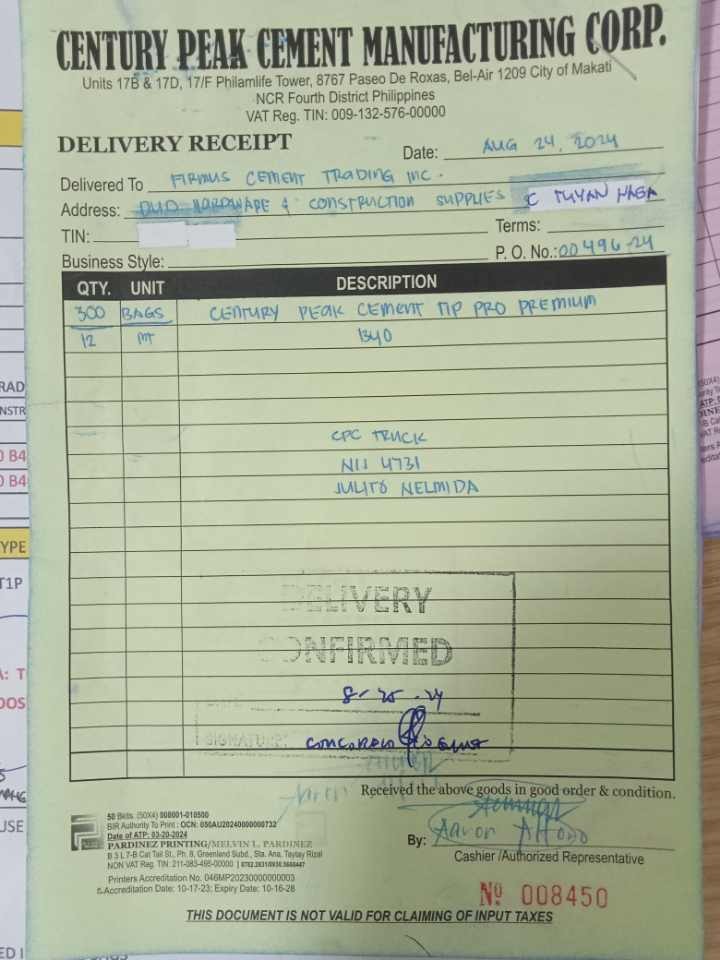 CENTURY PEAK CEMENT MANUFACTURING CORP.
Units 17B & 17D, 17/F Philamlife Tower, 8767 Paseo De Roxas, Bel-Air 1209 City of Makati
NCR Fourth District Philippines
VAT Reg. TIN: 009-132-576-00000
DELIVERY RECEIPT
Date: AUG 24, 2024
Delivered To FIRMUS CEMENT TRADING INC.
Address: DMD HARDWARE & CONSTRUCTION SUPPLIES C TUYAN NAGA
TIN:
Terms:
Business Style:
P. O. No.: 00496-24
QTY. UNIT DESCRIPTION
300 BAGS CENTURY PEAK CEMENT TIP PRO PREMIUM
12 MT B40
CPC TRUCK
NIJ 4731
JULITO NELMIDA
DELIVERY
CONFIRMED
8-25-24
Received the above goods in good order & condition.
By: Aaron
Cashier /Authorized Representative
50 Bklts. (50X4) 008001-010500
BIR Authority To Print : OCN: 050AU20240000000732
Date of ATP: 03-20-2024
PARDINEZ PRINTING/MELVIN L. PARDINEZ
B 3 L 7-B Cat Tail St., Ph. 8, Greenland Subd., Sta. Ana, Taytay Rizal
NON VAT Reg. TIN: 211-083-495-00000
Printers Accreditation No. 046MP20230000000003
Accreditation Date: 10-17-23; Expiry Date: 10-16-28
Nº 008450
THIS DOCUMENT IS NOT VALID FOR CLAIMING OF INPUT TAXES
RAD
NSTR
B4
B4
YPE
T1P
USE